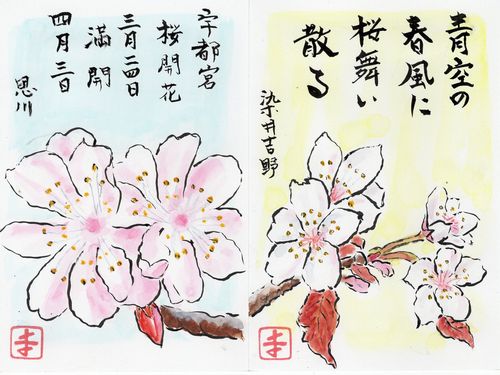 宇都宮
桜開花
三月二四日
満開
四月三日
思川
青空の
春風に
桜舞い
散る
染井吉野